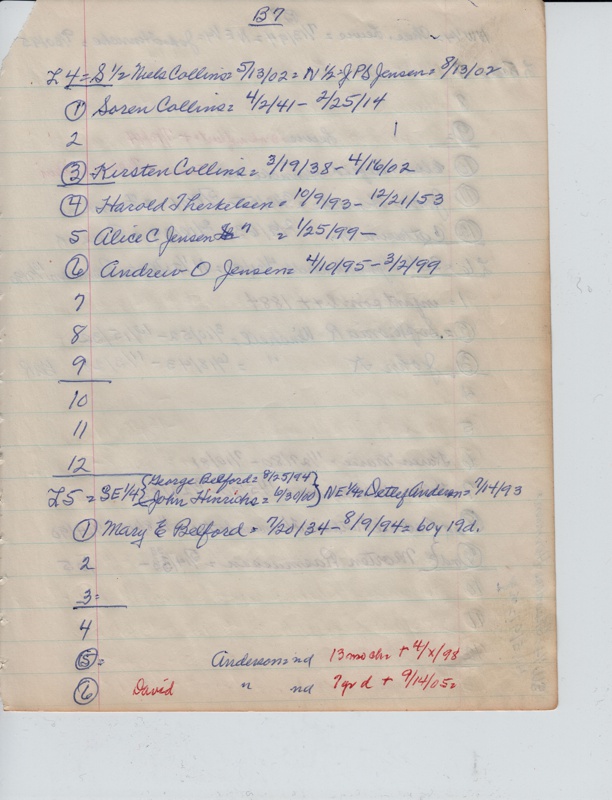 B7
L 4 = S 1/2 Niels Collins = 5/13/02 = N 1/2 = JPS Jensen = 8/13/02
① Soren Collins = 4/2/41 - 2/25/14
2
③ Kirsten Collins = 3/19/38 - 4/16/02
④ Harold Therkelsen = 10/9/93 - 12/21/53
5 Alice C Jensen = 1/25/99 -
⑥ Andrew O Jensen = 4/10/95 - 3/2/99
7
8
9
10
11
12
L 5 = SE 1/4 { George Belford = 8/25/94
John Hinrichs = 6/30/00 } NE 1/4 = Detlef Anderson = 7/14/93
① Mary E Belford = 7/20/34 - 8/9/94 = 60y 19d.
2
3 =
4
⑤ = Anderson = nd 13mo ch + 4/x/98
⑥ David " nd 7yr d + 9/14/05 =